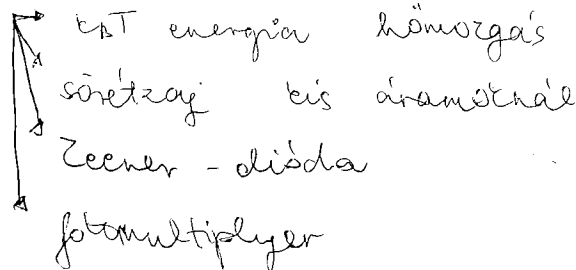 kBT energia hőmozgás
sörétzaj kis áramoknál
Zener - dióda
fotomultiplyer